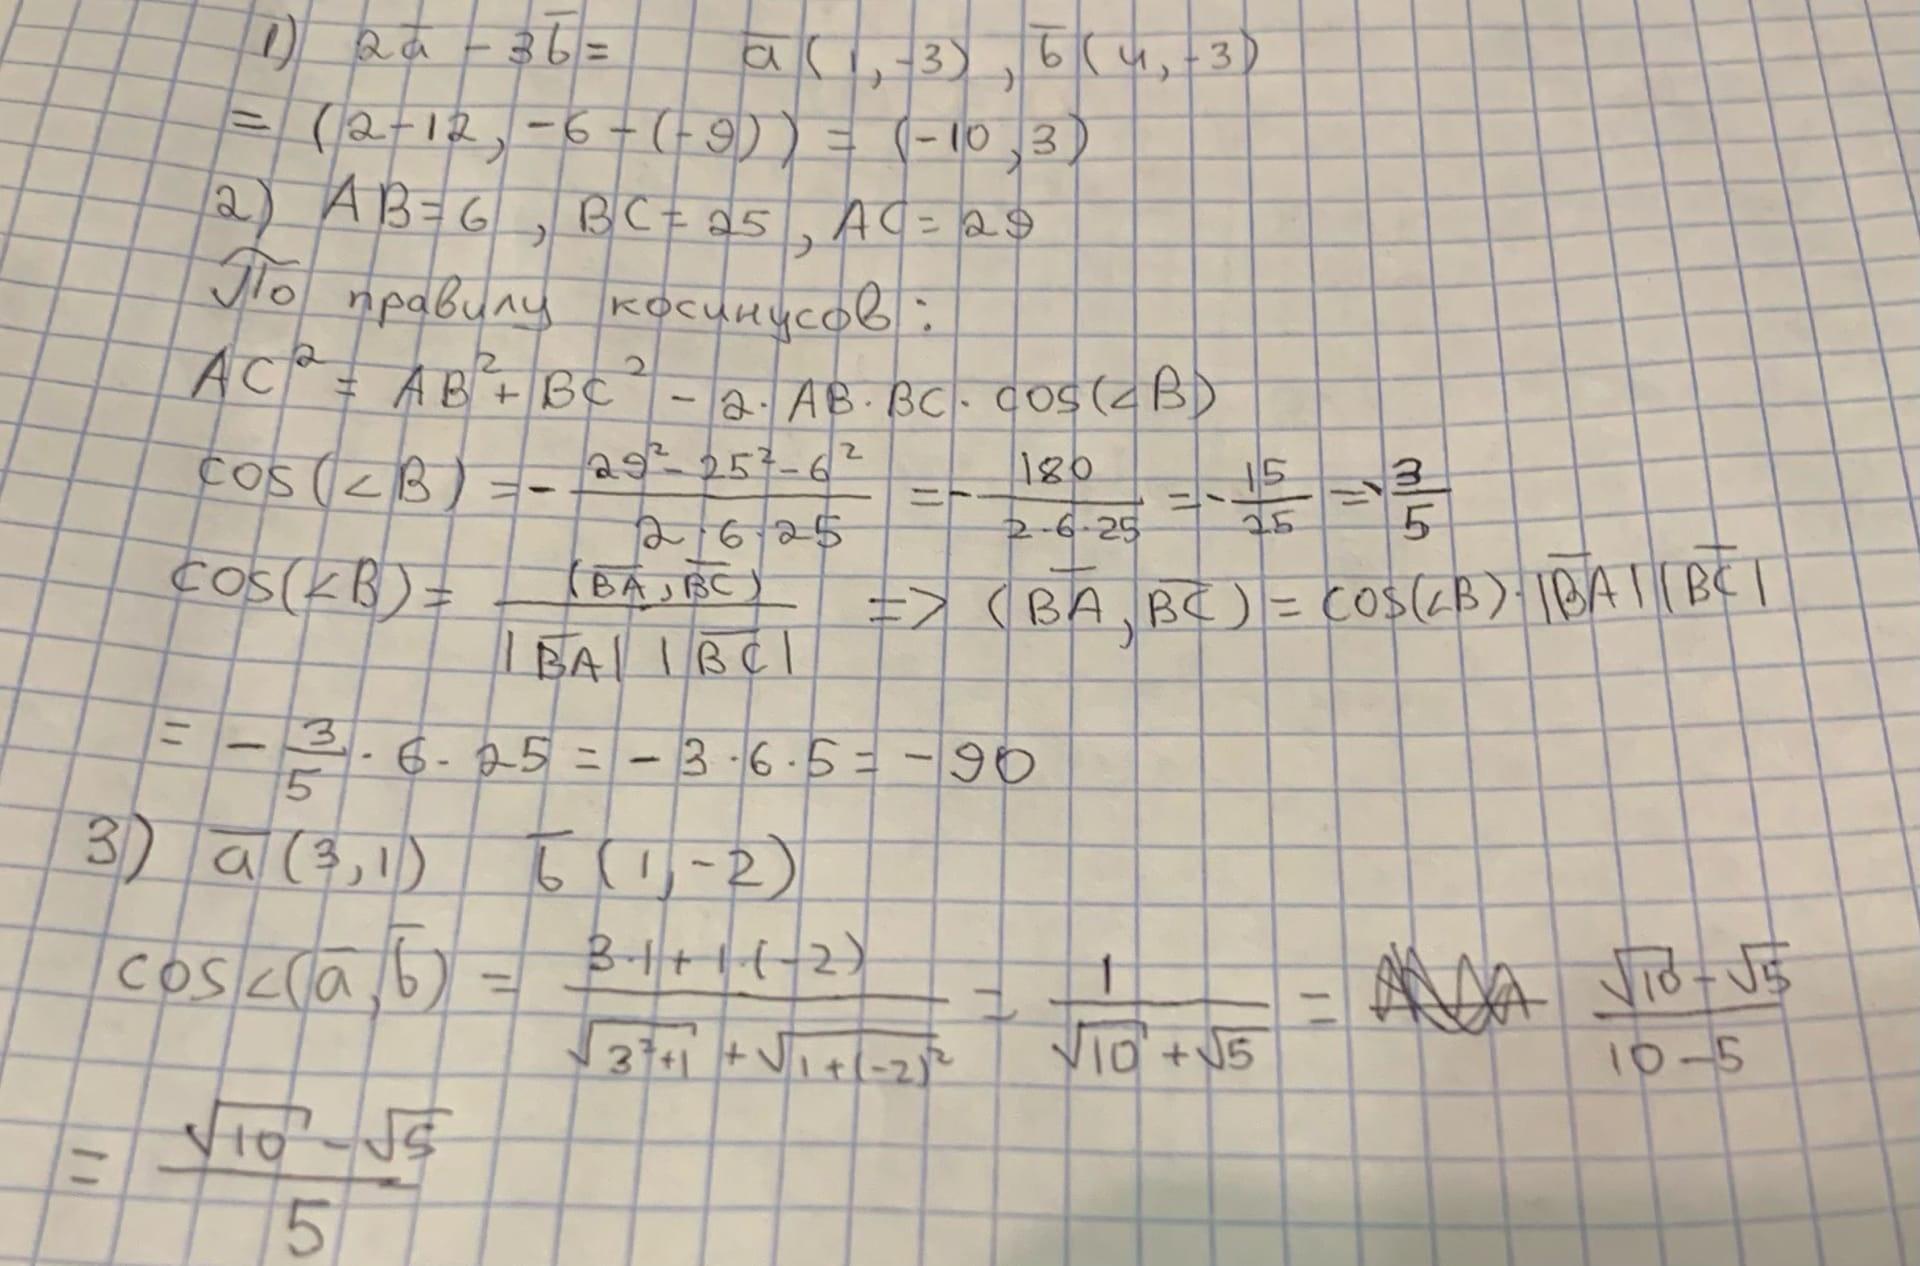 1) 2a̅ - 3b̅ = a̅ (1, -3), b̅ (4, -3)
= (2-12, -6-(-9)) = (-10, 3)
2) AB = 6, BC = 25, AC = 29
По правилу косинусов:
AC² = AB² + BC² - 2·AB·BC·cos(∠B)
cos(∠B) = - (29² - 25² - 6²)/(2·6·25) = - 180/(2·6·25) = - 15/25 = - 3/5
cos(∠B) = (B̅A̅, B̅C̅)/(|B̅A̅| |B̅C̅|) => (B̅A̅, B̅C̅) = cos(∠B)·|B̅A̅||B̅C̅|
= - 3/5 · 6 · 25 = - 3·6·5 = - 90
3) a̅ (3, 1) b̅ (1, -2)
cos∠(a̅, b̅) = (3·1 + 1·(-2))/(√(3²+1) + √(1+(-2)²)) = 1/(√10 + √5) = (√10 - √5)/(10 - 5)
= (√10 - √5)/5